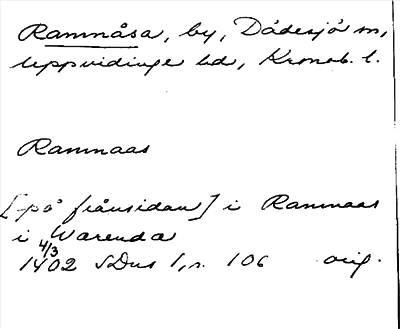 Ramnåsa, by, Dädesjö sn,
Uppvidinge hd, Kronob. l.
Ramnaas
[på frånsidan] i Ramnaas
i Warenda
4/3
1402 SDns 1, s. 106 orig.